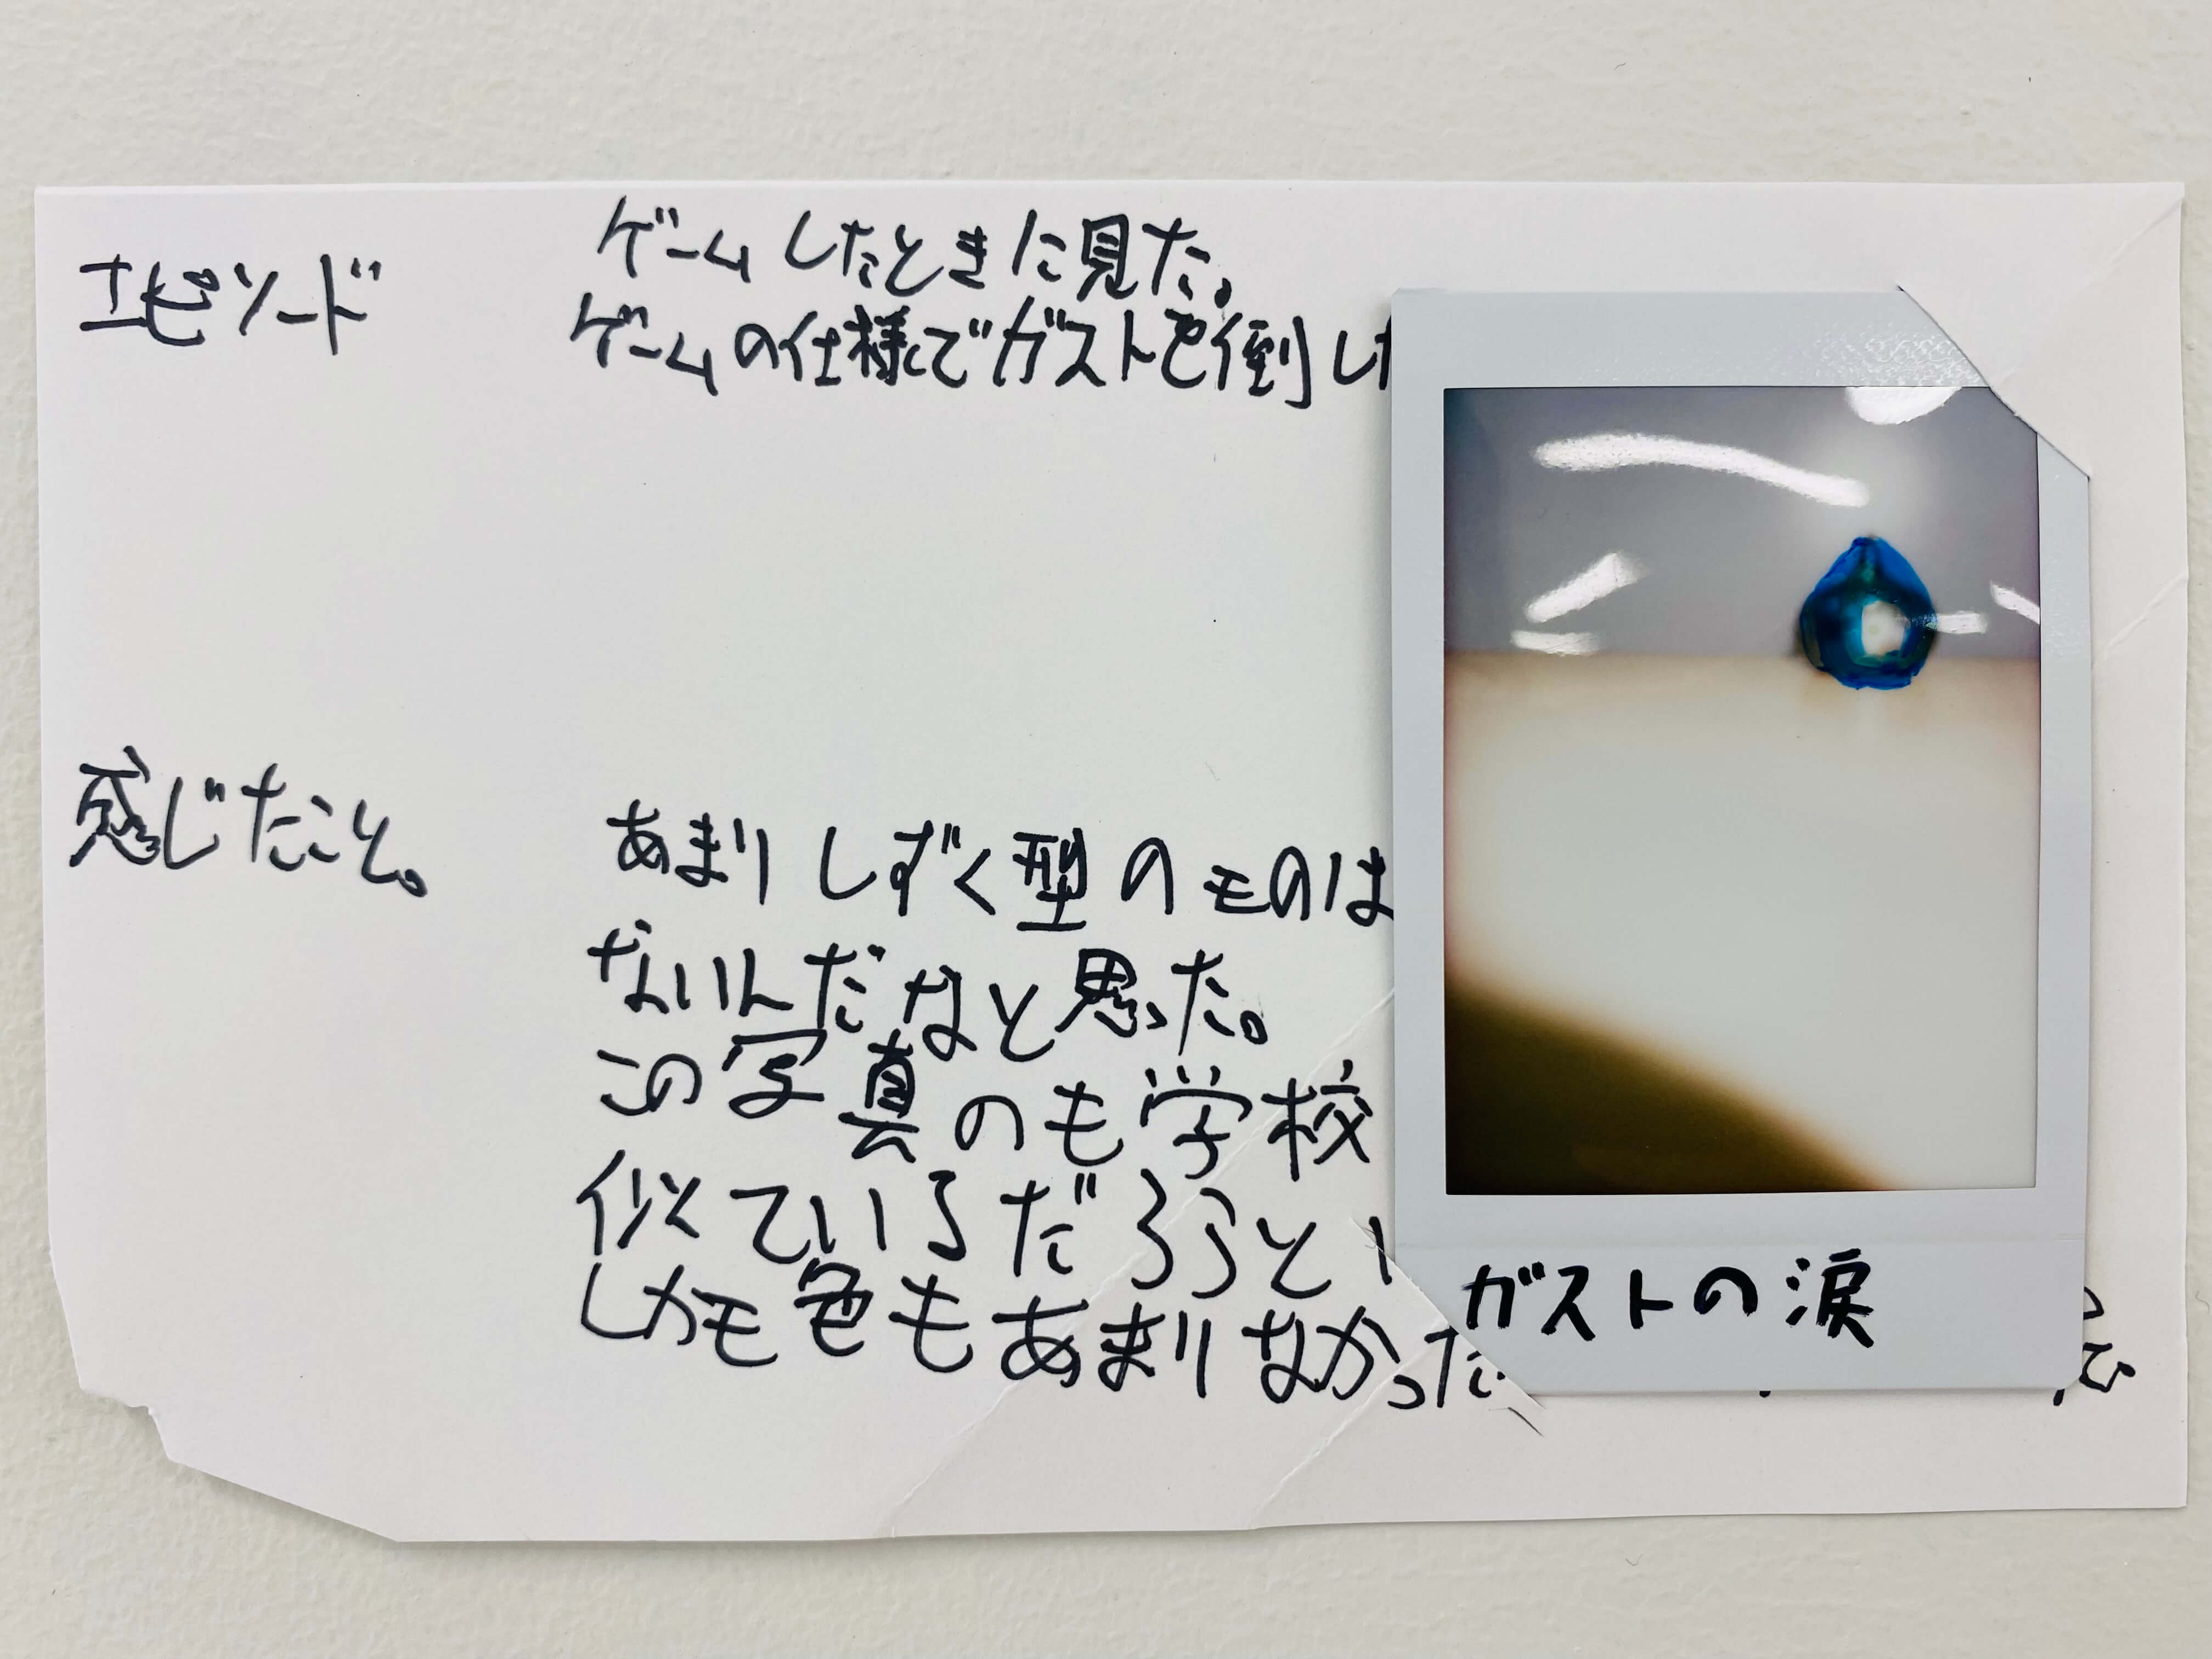 エピソード
ゲームしたときに見た。
ゲームの仕様でガストを倒し
感じたこと。
あまりしずく型のモノは
ないんだなと思った。
この写真のも学校
似ているだろうと
しかモ色もあまりなかった
ガストの涙